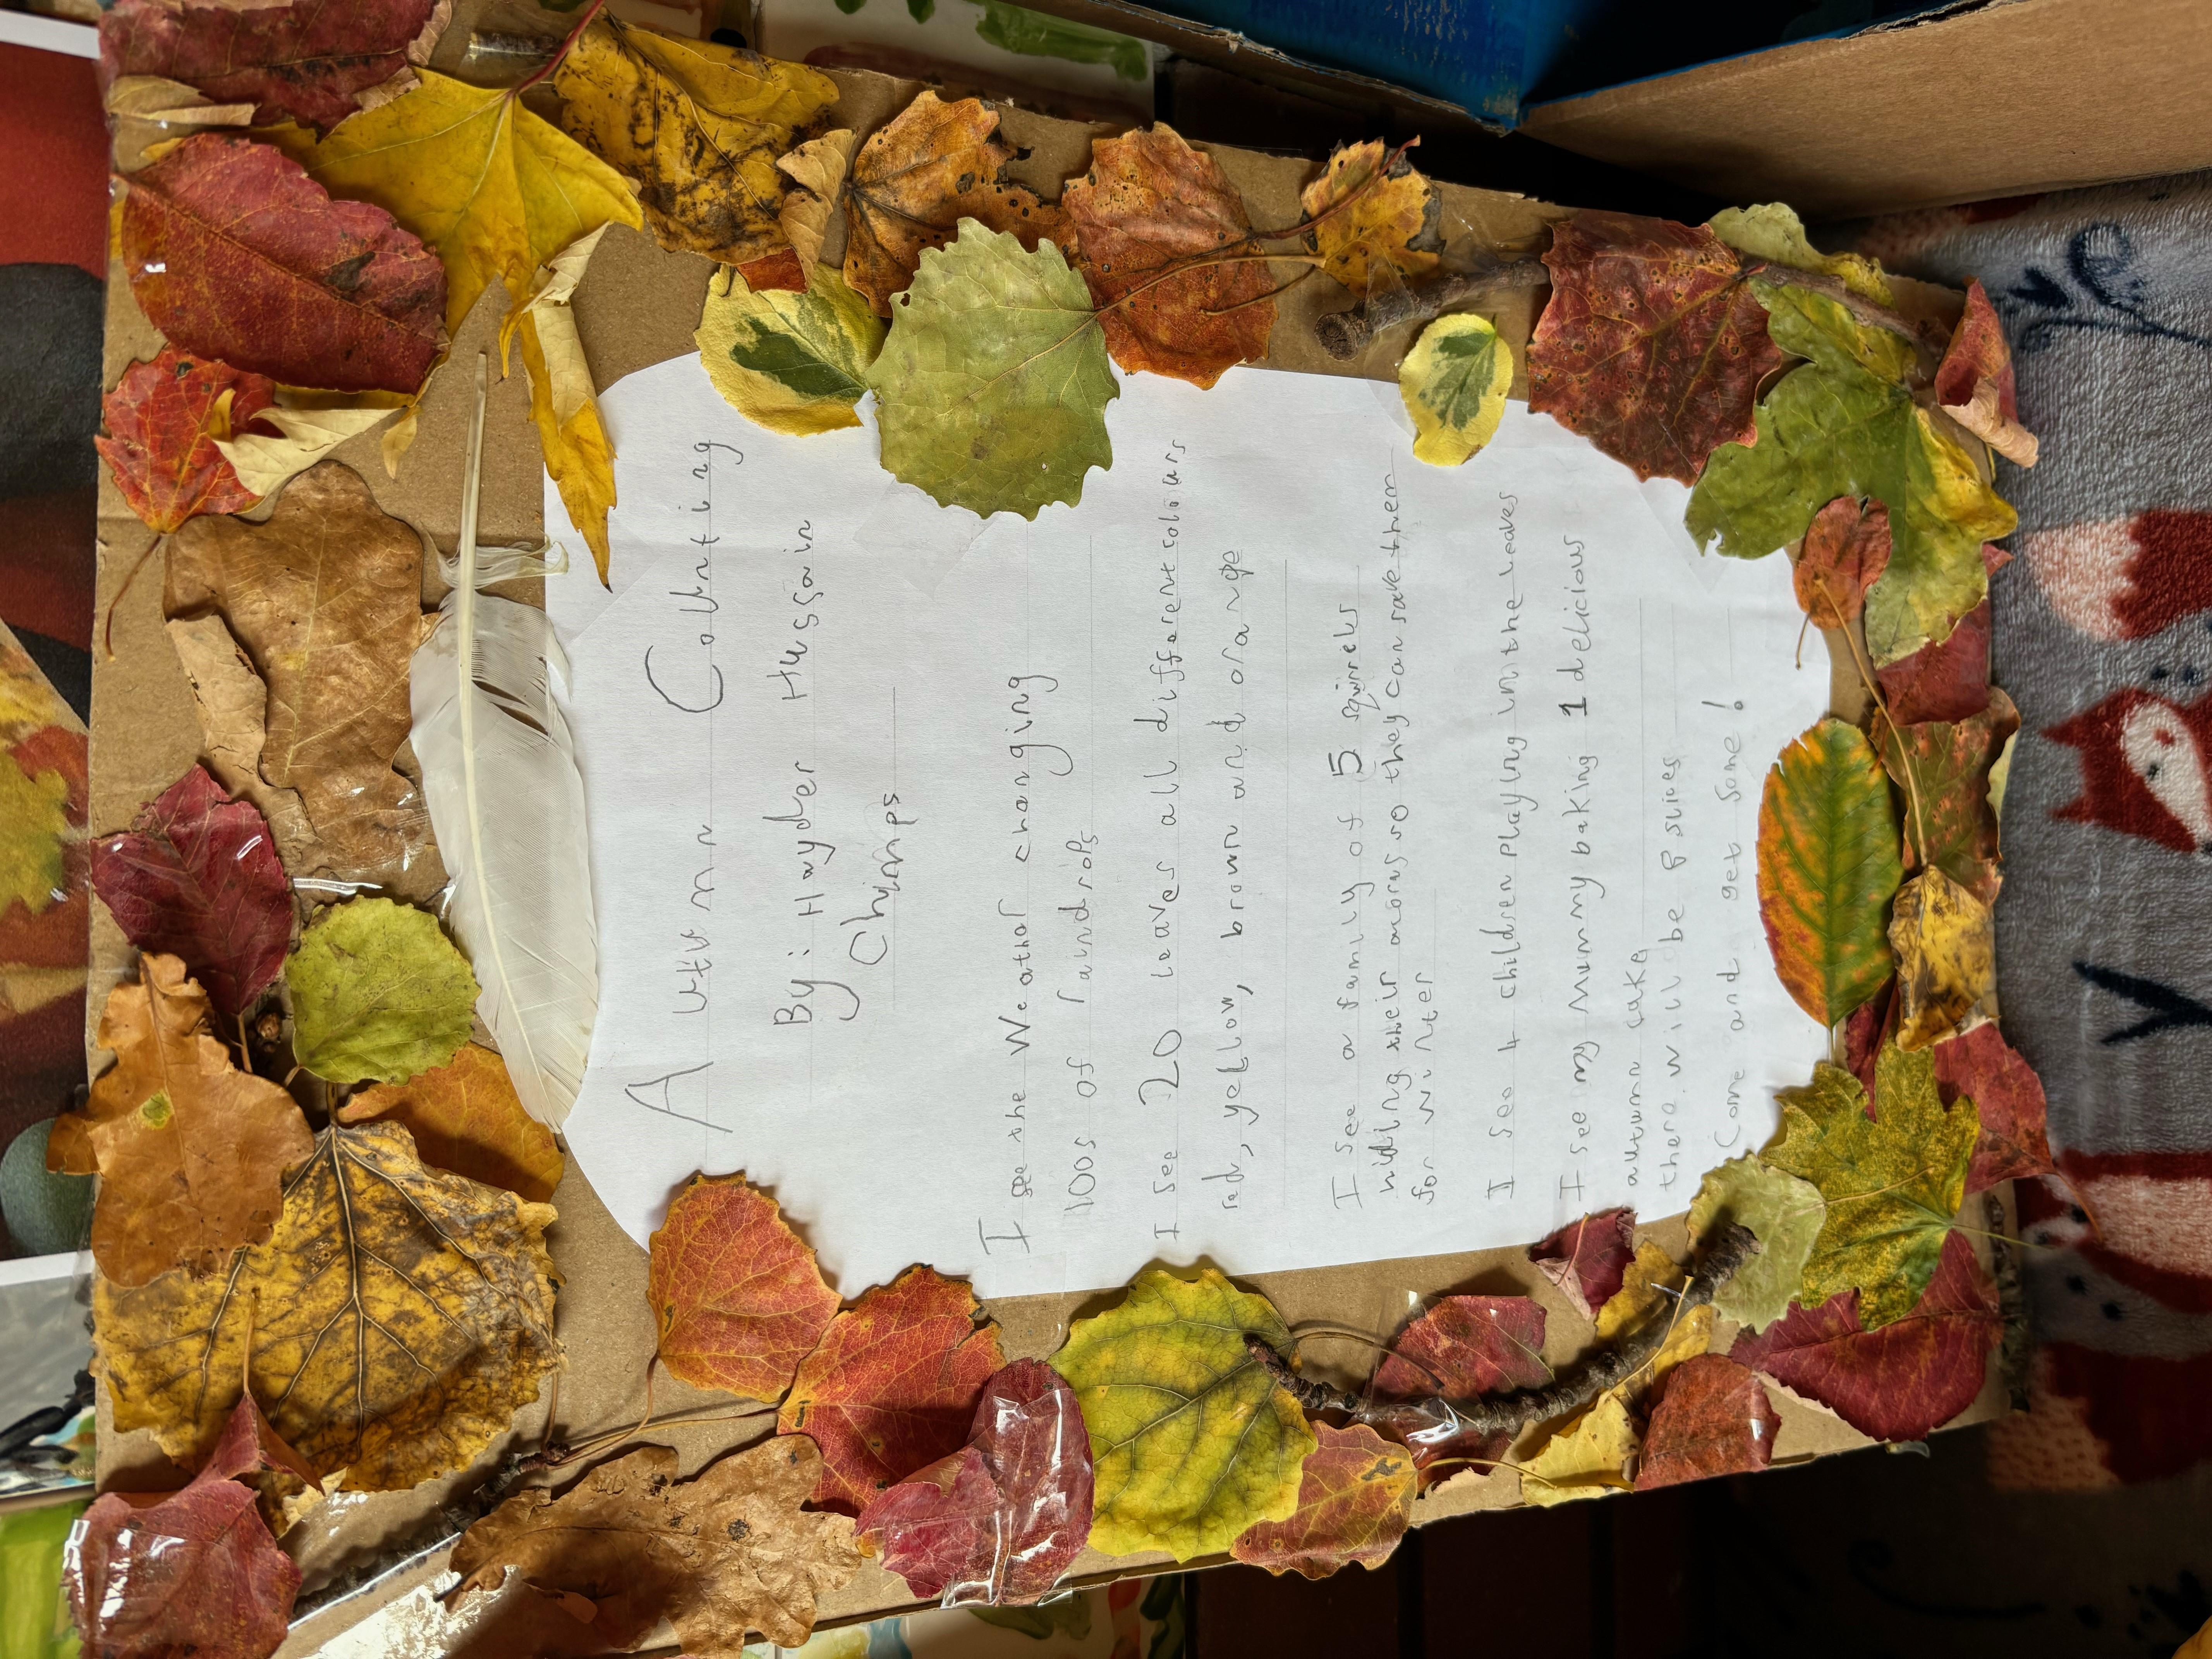 Autumn Counting
By: Hayder Hussain
Chimps
I see the Weather changing
100s of raindrops
I see 20 leaves all different colours
red, yellow, brown and orange
I see a family of 5 squirrels
hiding their acorns so they can save them
for winter
I see 4 children playing in the leaves
I see my mummy baking 1 delicious
autumn cake
there will be 8 slices
Come and get some!